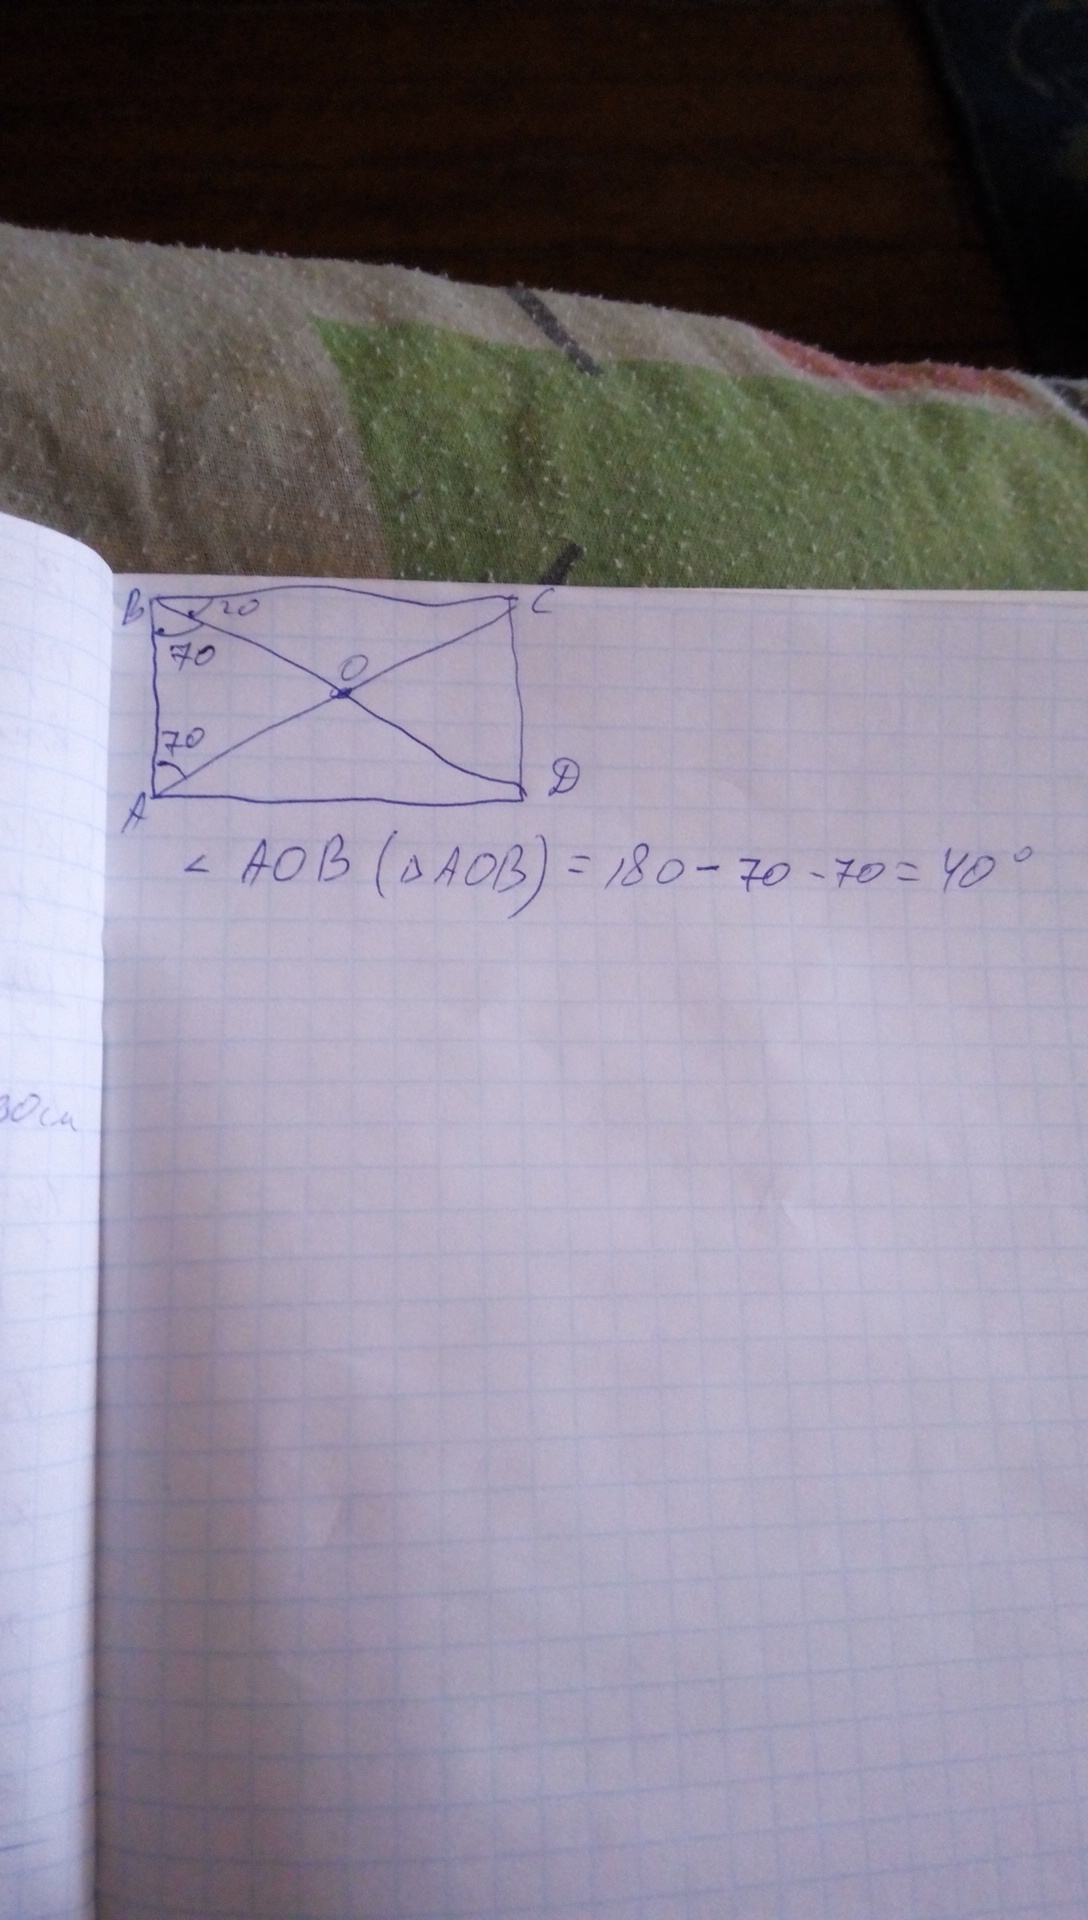 B 20 C
70
O
70
A D
∠ AOB (△AOB) = 180 - 70 - 70 = 40°
30см